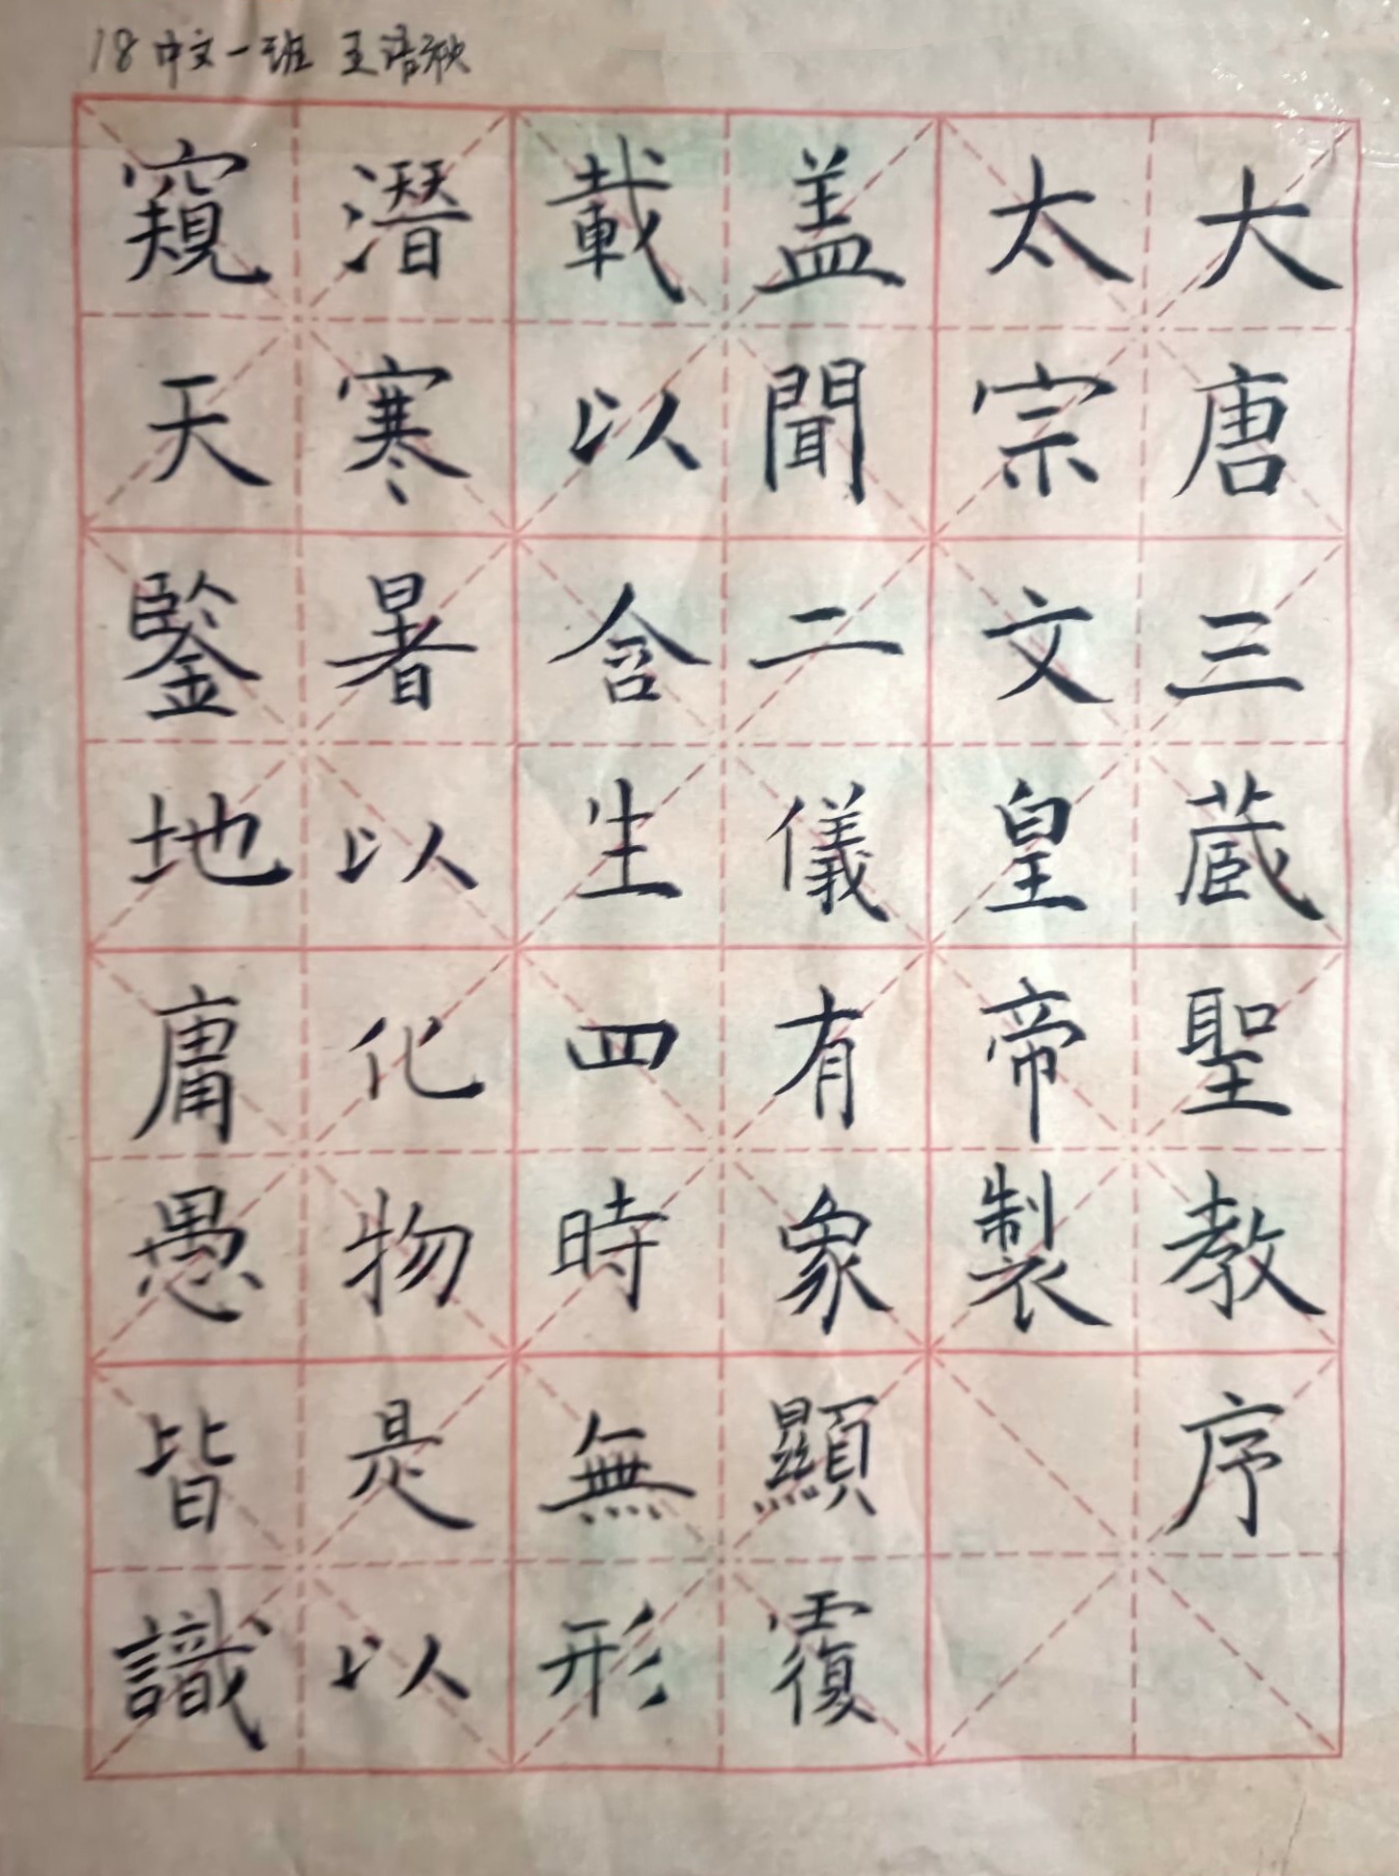 18中文一班 王语秋
大唐三蔵聖教序
太宗文皇帝製
盖聞二儀有象顯覆
載以含生四時無形
潛寒暑以化物是以
窺天鑒地庸愚皆識